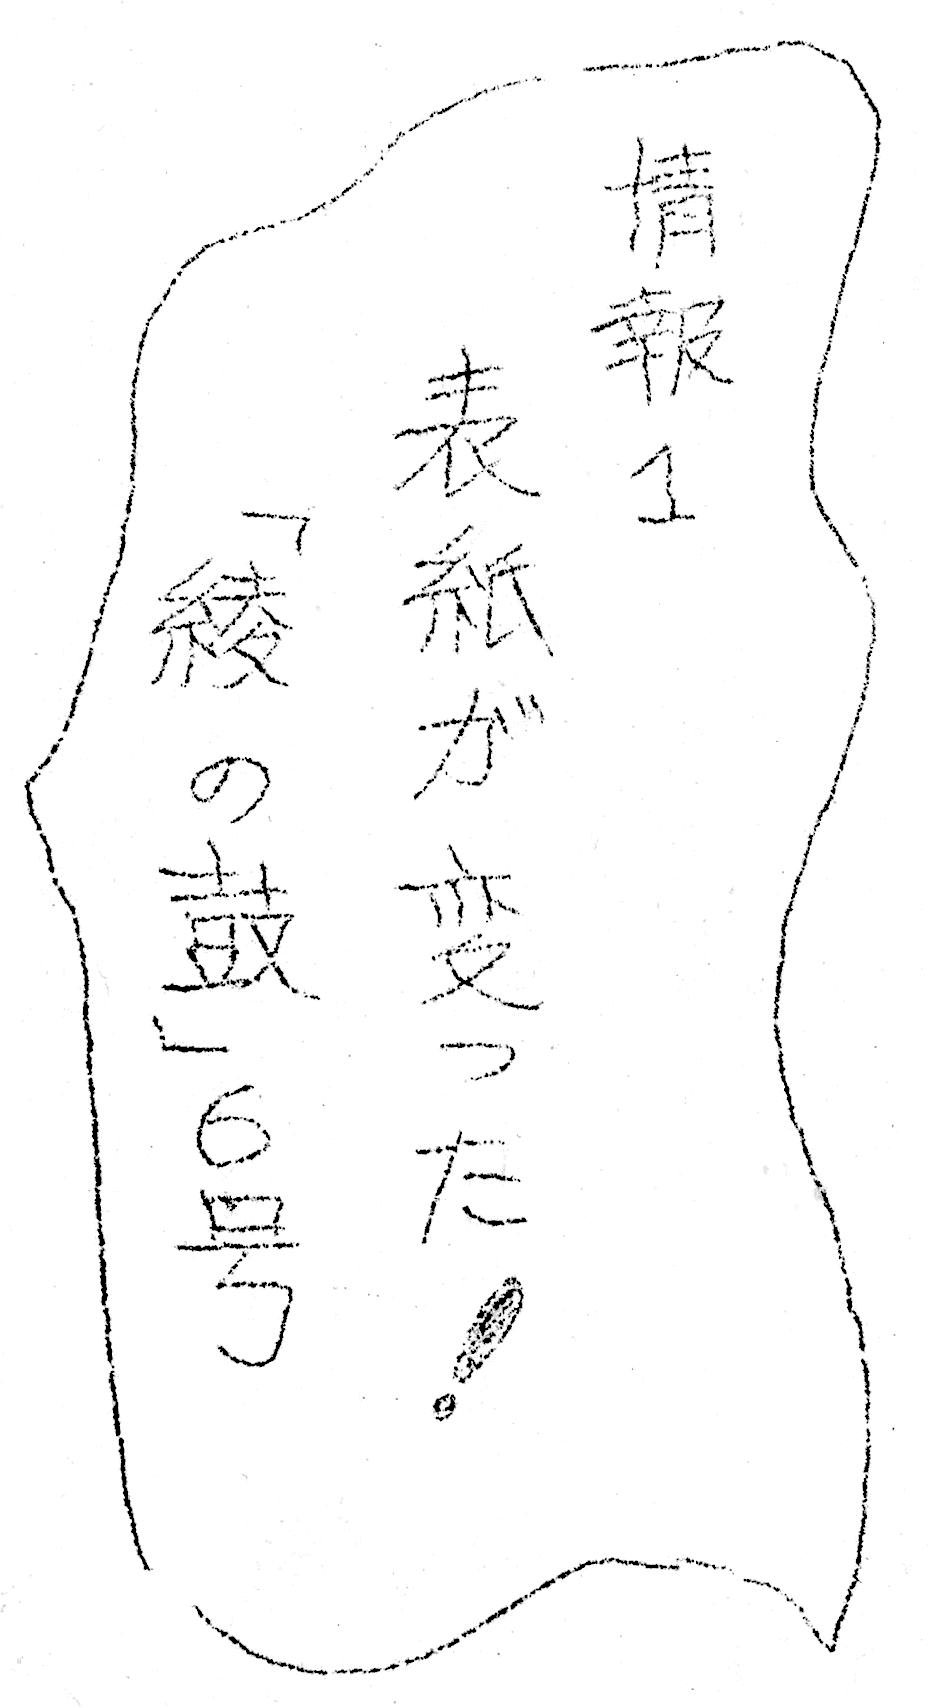 情報1
表紙が変った!
「綾の鼓」6号